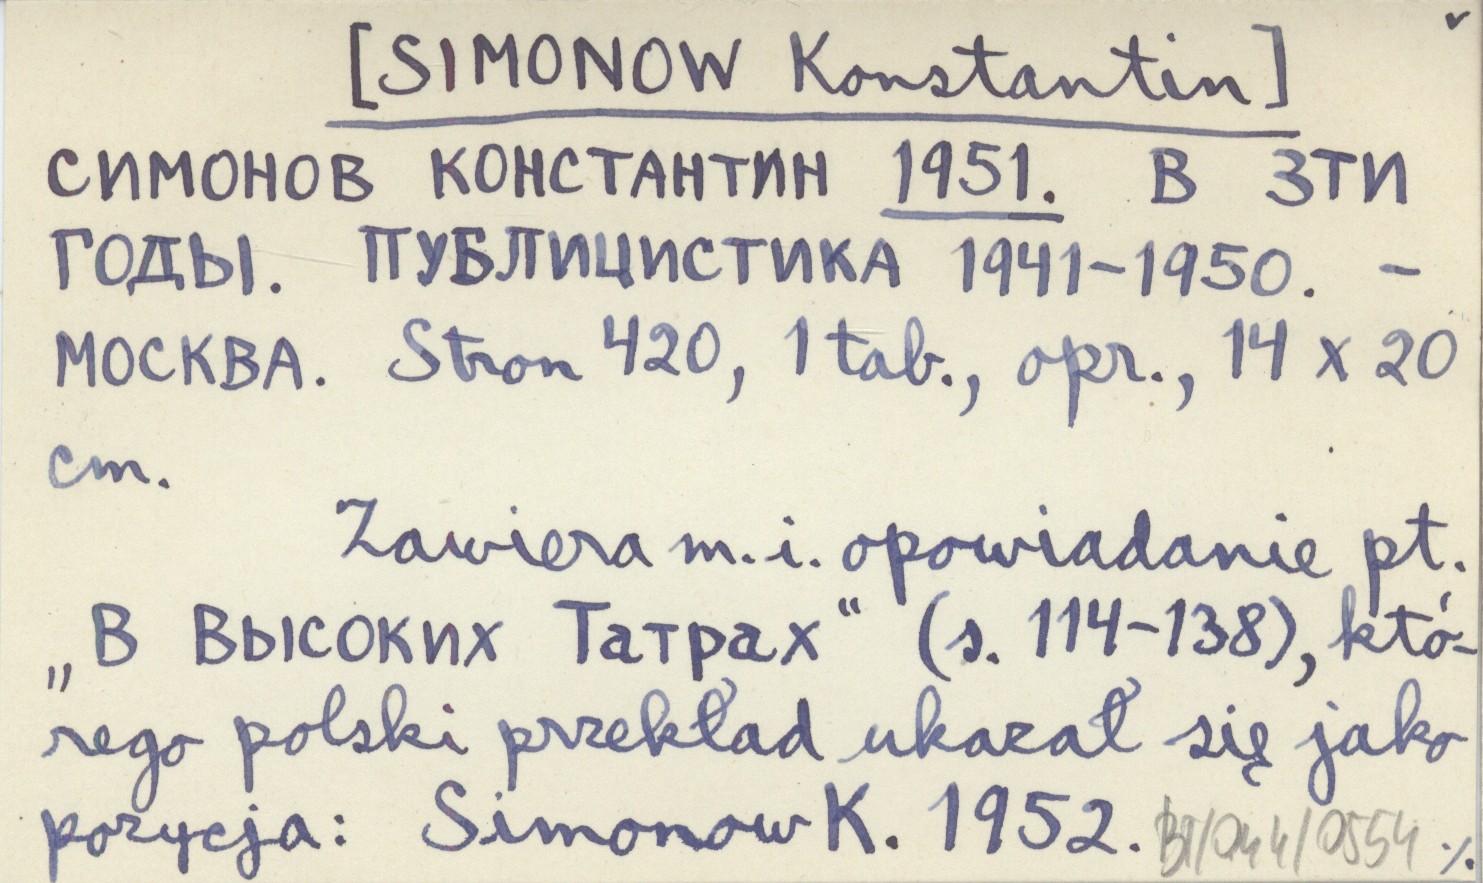 [SIMONOW Konstantin]
СИМОНОВ КОНСТАНТИН 1951. В ЭТИ
ГОДЫ. ПУБЛИЦИСТИКА 1941-1950. -
МОСКВА. Stron 420, 1 tab., opr., 14 x 20
cm.
Zawiera m.i. opowiadanie pt.
„В ВЫСОКИХ Татрах“ (s. 114-138), któ-
rego polski przekład ukazał się jako
pozycja: Simonow K. 1952. BT/044/0554 ./.